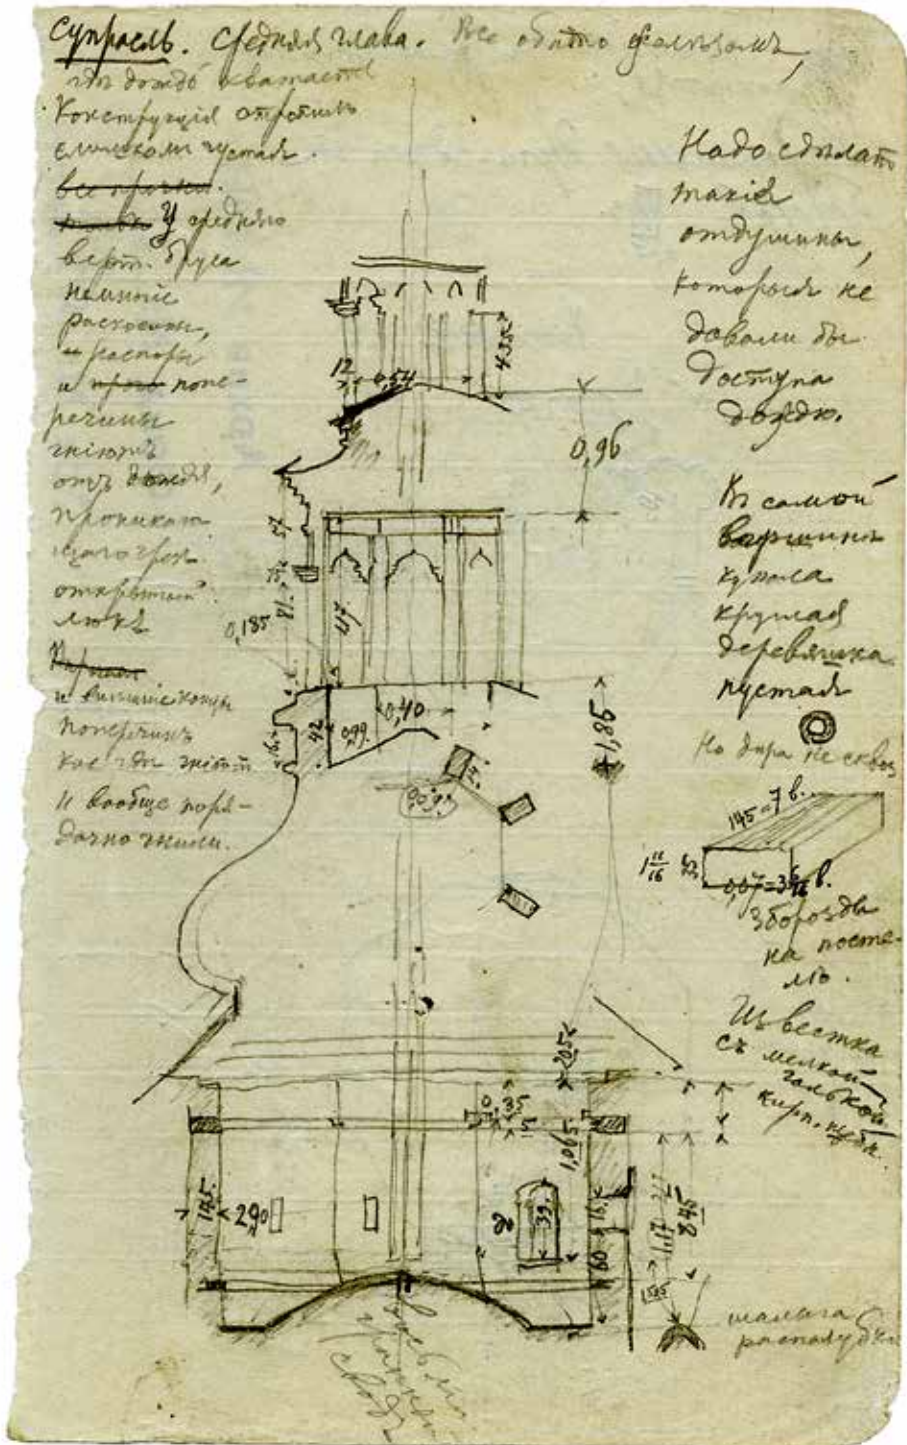 Супрасль. Средняя глава. Все обито железомъ,
гдѣ дождь хватаетъ
Конструкція стропилъ
слишкомъ густая.
У средняго
верт. бруса
нижніе
раскосины,
и распоры
и попе-
речины
гніютъ
отъ дождя,
проникаю
щаго чрез
открытый
люкъ
и внѣшніе концы
поперечинъ
кое гдѣ гніютъ
И вообще поря-
дочно гнили.
Надо сдѣлать
такія
отдушины,
которыя не
давали бы
доступа
дождю.
Въ самой
вершинѣ
купола
круглая
деревяшка
пустая
Но дыра не сквоз
145=7 в.
1 11/16
0,07=3 в.
3 борозды
на посте-
лѣ.
Известка
съ мелкой
галькой
кирп.
12
0,54
0,96
57
81
0,185
47
42
0,99
0,40
1,85
205
35
15
1,065
145
2,90
20
39
15
60
1,17
845
шалыга
распалубки
восьми
гранный
сводъ